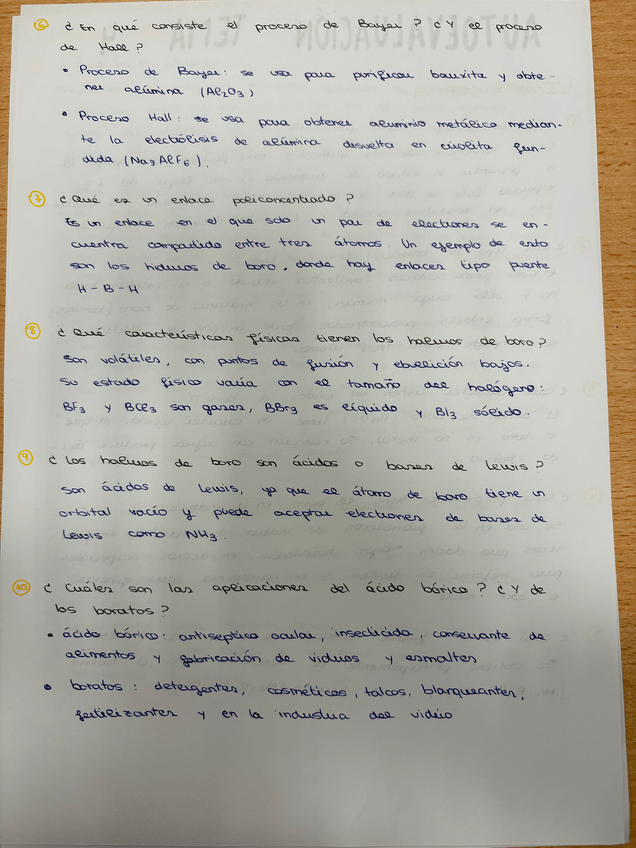 6 ¿En qué consiste el proceso de Bayer? ¿Y el proceso
de Hall?
• Proceso de Bayer: se usa para purificar bauxita y obte-
ner alúmina (Al2O3)
• Proceso Hall: se usa para obtener aluminio metálico median-
te la electrólisis de alúmina disuelta en criolita fun-
dida (Na3AlF6).
7 ¿Qué es un enlace policoncentrado?
Es un enlace en el que solo un par de electrones se en-
cuentra compartido entre tres átomos. Un ejemplo de esto
son los hidruros de boro, donde hay enlaces tipo puente
H-B-H
8 ¿Qué características físicas tienen los haluros de boro?
Son volátiles, con puntos de fusión y ebullición bajos.
Su estado físico varía con el tamaño del halógeno:
BF3 y BCl3 son gases, BBr3 es líquido y BI3 sólido.
9 ¿Los haluros de boro son ácidos o bases de Lewis?
Son ácidos de Lewis, ya que el átomo de boro tiene un
orbital vacío y puede aceptar electrones de bases de
Lewis como NH3.
10 ¿Cuáles son las aplicaciones del ácido bórico? ¿Y de
los boratos?
• ácido bórico: antiséptico ocular, insecticida, conservante de
alimentos y fabricación de vidrios y esmaltes
• boratos: detergentes, cosméticos, talcos, blanqueantes,
fertilizantes y en la industria del vidrio